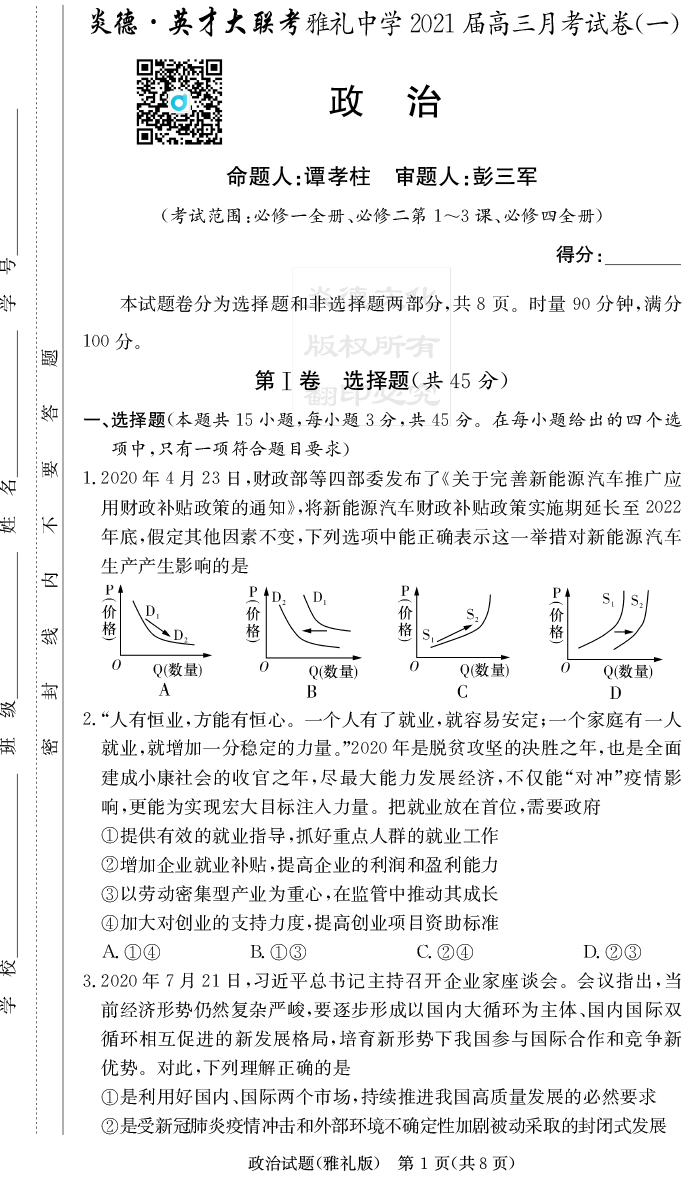 炎德·英才大联考雅礼中学 2021 届高三月考试卷(一)
政 治
命题人:谭孝柱 审题人:彭三军
(考试范围:必修一全册、必修二第 1～3 课、必修四全册)
得分:________
本试题卷分为选择题和非选择题两部分,共 8 页。时量 90 分钟,满分
100 分。
第Ⅰ卷 选择题(共 45 分)
一、选择题(本题共 15 小题,每小题 3 分,共 45 分。在每小题给出的四个选
项中,只有一项符合题目要求)
1. 2020 年 4 月 23 日,财政部等四部委发布了《关于完善新能源汽车推广应
用财政补贴政策的通知》,将新能源汽车财政补贴政策实施期延长至 2022
年底,假定其他因素不变,下列选项中能正确表示这一举措对新能源汽车
生产产生影响的是
P(价格) D₁ D₂ O Q(数量) A
P(价格) D₂ D₁ O Q(数量) B
P(价格) S₁ S₂ O Q(数量) C
P(价格) S₁ S₂ O Q(数量) D
2. “人有恒业,方能有恒心。一个人有了就业,就容易安定;一个家庭有一人
就业,就增加一分稳定的力量。”2020 年是脱贫攻坚的决胜之年,也是全面
建成小康社会的收官之年,尽最大能力发展经济,不仅能“对冲”疫情影
响,更能为实现宏大目标注入力量。把就业放在首位,需要政府
①提供有效的就业指导,抓好重点人群的就业工作
②增加企业就业补贴,提高企业的利润和盈利能力
③以劳动密集型产业为重心,在监管中推动其成长
④加大对创业的支持力度,提高创业项目资助标准
A. ①④ B. ①③ C. ②④ D. ②③
3. 2020 年 7 月 21 日,习近平总书记主持召开企业家座谈会。会议指出,当
前经济形势仍然复杂严峻,要逐步形成以国内大循环为主体、国内国际双
循环相互促进的新发展格局,培育新形势下我国参与国际合作和竞争新
优势。对此,下列理解正确的是
①是利用好国内、国际两个市场,持续推进我国高质量发展的必然要求
②是受新冠肺炎疫情冲击和外部环境不确定性加剧被动采取的封闭式发展
政治试题(雅礼版) 第 1 页(共 8 页)
学 校 班 级 姓 名 学 号
密 封 线 内 不 要 答 题
炎德文化
版权所有
翻印必究